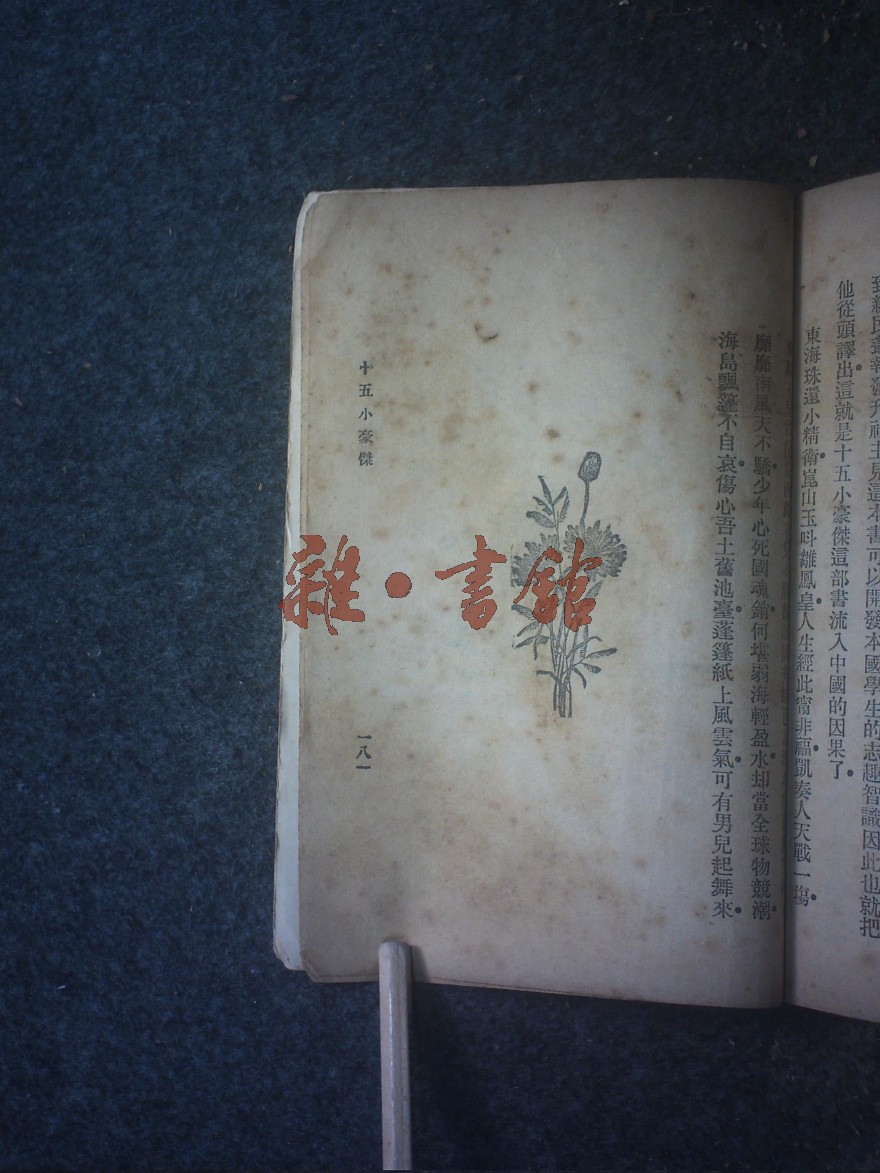 到新民叢報發刊社主見這本書可以開發本國學生的志趣智識因此也就把
他從頭譯出這就是十五小豪傑這部書流入中國的因果了
東海珠還小精衛崑山玉叫雛鳳皇人生經此甯非福凱奏人天戰一塲
南風天不驕少年心死國魂銷何堪弱海輕盈水却當全球物競潮
海島飄蓬不自哀傷心吾土舊池臺蓬蓬紙上風雲氣可有男兒起舞來
十五小豪傑
一八一
雜·書館